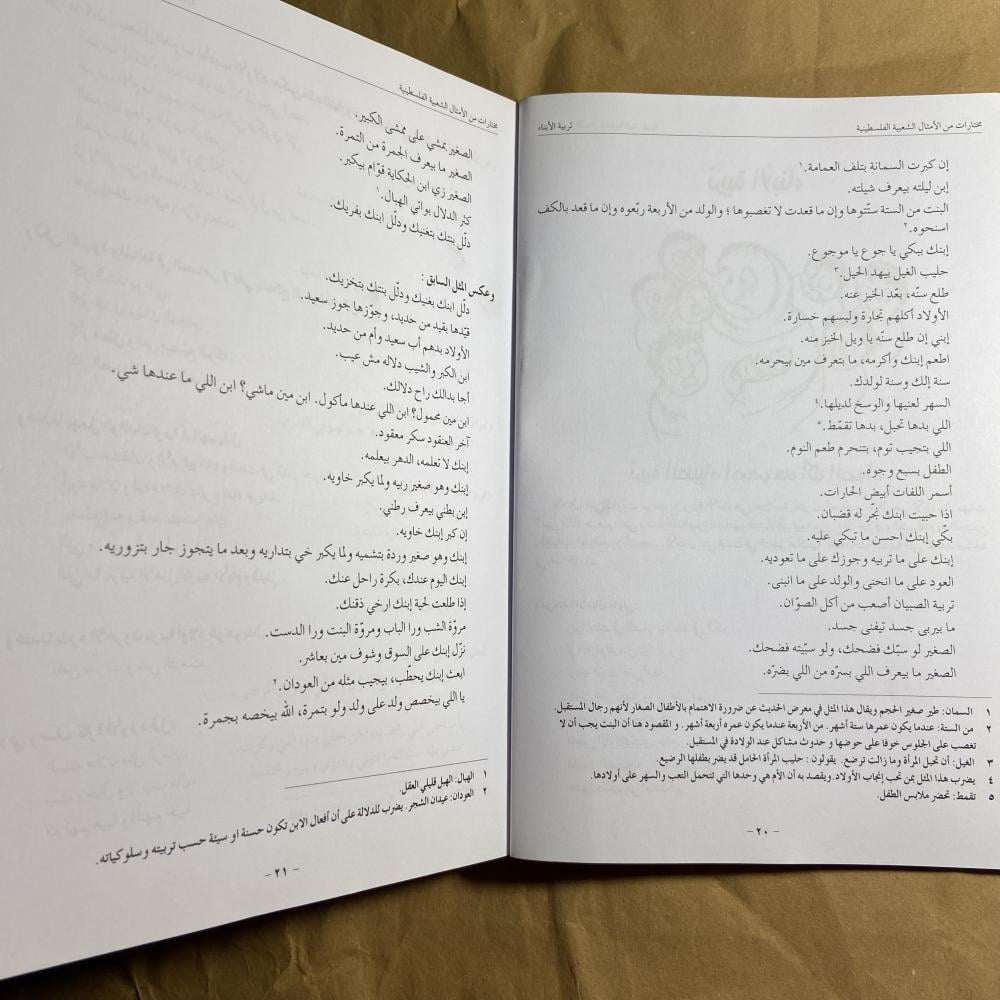 مختارات من الأمثال الشعبية الفلسطينية
تربية الأبناء
إن كبرت السمانة بتلف العمامة.١
إبن ليلته بيعرف شيلته.
البنت من الستة ستّتوها وإن ما قعدت لا تغصبوها ؛ والولد من الأربعة ربّعوه وإن ما قعد بالكف
اسنحوه.٢
إبنك ببكي يا جوع يا موجوع.
حليب الغيل بيهد الحيل.٣
طلع سنّه، بعّد الخبز عنه.
الأولاد أكلهم تجارة ولبسهم خسارة.
إبني إن طلع سنّه يا ويل الخبز منه.
اطعم إبنك وأكرمه، ما بتعرف مين بيحرمه.
سنة إلك وسنة لولدك.
السهر لعنيها والوسخ لديلها.٤
اللي بدها تحبل، بدها تقمّط.٥
اللي بتجيب توم، بتنحرم طعم النوم.
الطفل بسبع وجوه.
أسمر اللفات أبيض الحارات.
اذا حبيت ابنك نجّر له قضبان.
بكّي إبنك احسن ما تبكي عليه.
إبنك على ما تربيه وجوزك على ما تعوديه.
العود على ما انحنى والولد على ما انبنى.
تربية الصبيان أصعب من أكل الصوّان.
ما بيربى جسد تيفنى جسد.
الصغير لو سبّك فضحك، ولو سبّيته فضحك.
الصغير ما بيعرف اللي بسرّه من اللي بضرّه.
١ السمان: طير صغير الحجم ويقال هذا المثل في معرض الحديث عن ضرورة الاهتمام بالأطفال الصغار لأنهم رجال المستقبل.
٢ من الستة: عندما يكون عمرها ستة أشهر. من الأربعة عندما يكون عمره أربعة أشهر. و المقصود هنا أن البنت يجب أن لا
تغصب على الجلوس خوفا على حوضها و حدوث مشاكل عند الولادة في المستقبل.
٣ الغيل: أن تحبل المرأة وما زالت ترضع. يقولون : حليب المرأة الحامل قد يضر بطفلها الرضيع.
٤ يضرب هذا المثل بمن تحب إنجاب الأولاد. ويقصد به أن الأم هي وحدها التي تتحمل التعب والسهر على أولادها.
٥ تقمط: تحضر ملابس الطفل.
- ٢٠ -
مختارات من الأمثال الشعبية الفلسطينية
الصغير بمشي على ممشى الكبير.
الصغير ما بيعرف الجمرة من التمرة.
الصغير زي ابن الحكاية قوّام بيكبر.
كثر الدلال بواتي الهبال.١
دلّل بنتك بتغنيك ودلّل ابنك بفريك.
وعكس المثل السابق :
دلّل ابنك بغنيك ودلّل بنتك بتخزيك.
قيّدها بقيد من حديد، وجوّزها جوز سعيد.
الأولاد بدهم أب سعيد وأم من حديد.
ابن الكبر والشيب دلاله مش عيب.
أجا بدالك راح دلالك.
ابن مين محمول؟ ابن اللي عندها مأكول. ابن مين ماشي؟ ابن اللي ما عندها شي.
آخر العنقود سكر معقود.
إبنك لا تعلمه، الدهر بيعلمه.
إبنك وهو صغير ربيه ولما يكبر خاويه.
إبن بطني بيعرف رطني.
إن كبر إبنك خاويه.
إبنك وهو صغير وردة بتشميه ولما يكبر خي بتداريه وبعد ما يتجوز جار بتزوريه.
إبنك اليوم عندك، بكرة راحل عنك.
إذا طلعت لحية إبنك ارخي ذقنك.
مروّة الشب ورا الباب ومروّة البنت ورا الدست.
نزّل إبنك على السوق وشوف مين بعاشر.
ابعث إبنك يحطّب، بيجيب مثله من العودان.٢
يا اللي بيخصص ولد على ولد ولو بتمرة، الله بيخصه بجمرة.
١ الهبال: الهبل قليلي العقل.
٢ العودان: عيدان الشجر. يضرب للدلالة على أن أفعال الابن تكون حسنة او سيئة حسب تربيته وسلوكياته.
- ٢١ -